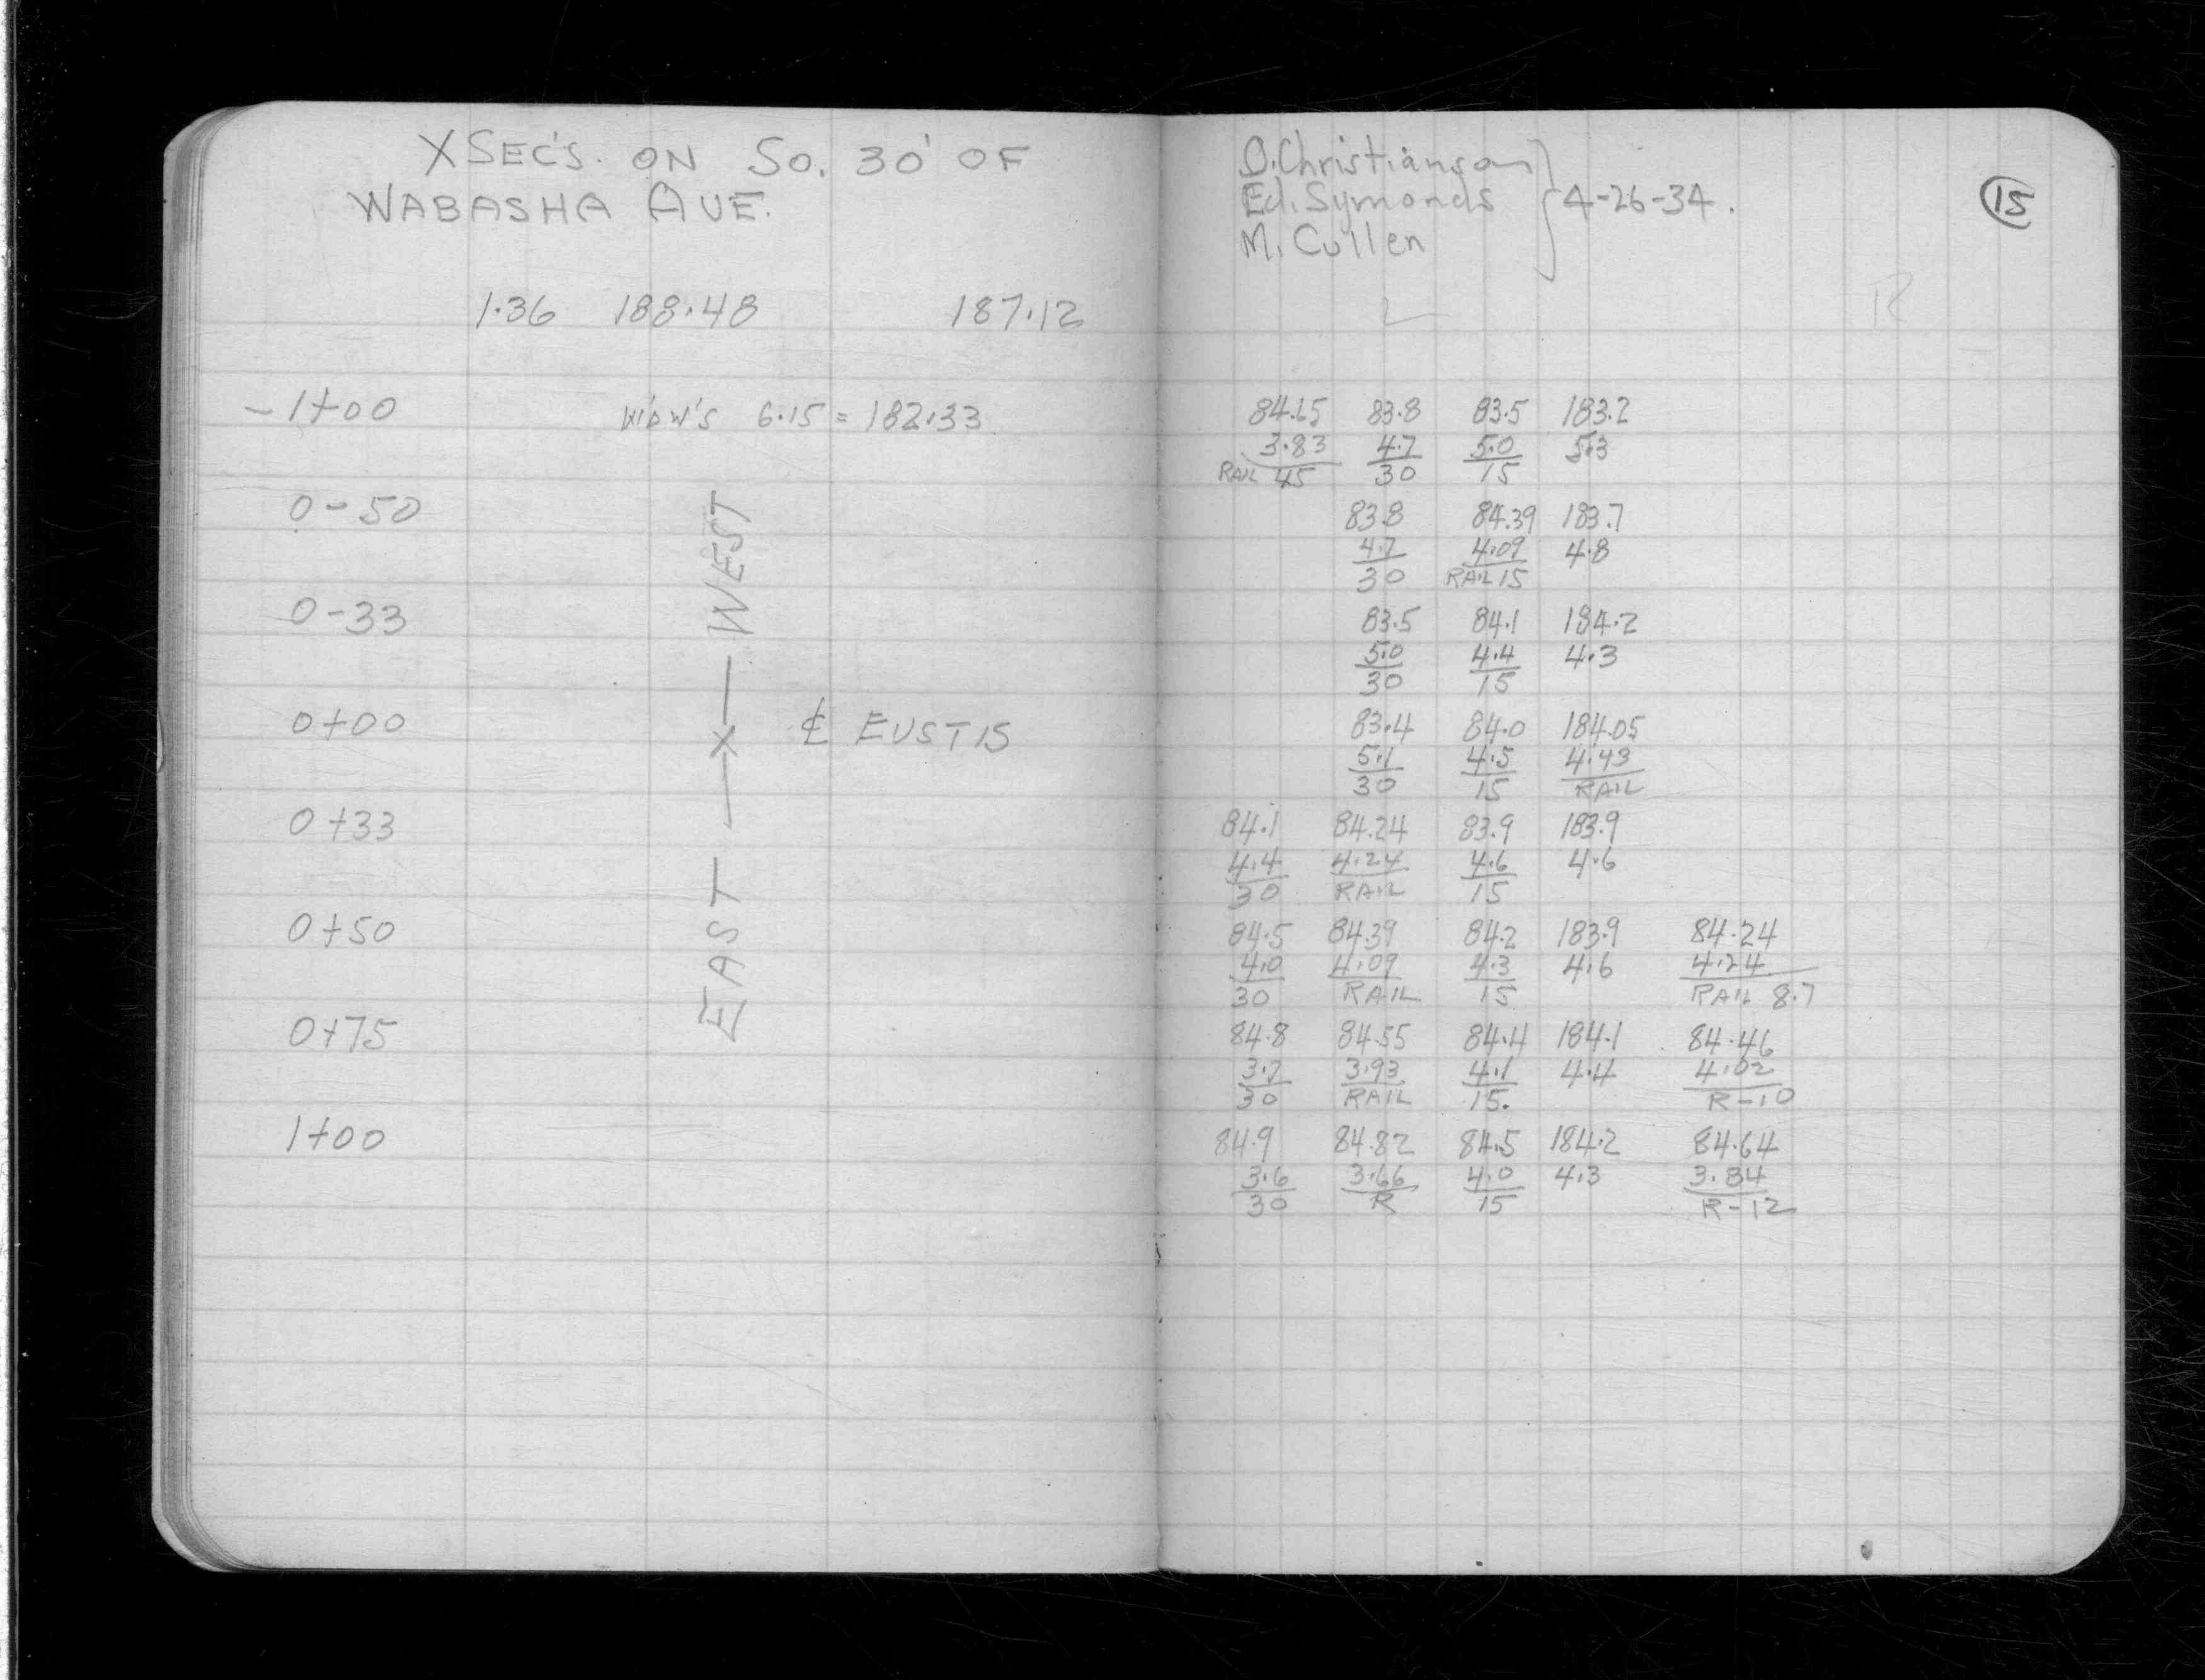 XSEC'S. ON SO. 30' OF
WABASHA AVE.
1.36 188.48 187.12
-1+00 6.15 = 182.33
0-50
0-33
0+00 ℄ EUSTIS
0+33
0+50
0+75
1+00
EAST —x— WEST
O. Christianson
Ed. Symonds } 4-26-34.
M. Cullen
15
L R
84.65 83.8 83.5 183.2
3.83 4.7 5.0 5.3
RAIL 45 30 15
83.8 84.39 183.7
4.7 4.09 4.8
30 RAIL 15
83.5 84.1 184.2
5.0 4.4 4.3
30 15
83.4 84.0 184.05
5.1 4.5 4.43
30 15 RAIL
84.1 84.24 83.9 183.9
4.4 4.24 4.6 4.6
30 RAIL 15
84.5 84.39 84.2 183.9 84.24
4.0 4.09 4.3 4.6 4.24
30 RAIL 15 RAIL 8.7
84.8 84.55 84.4 184.1 84.46
3.7 3.93 4.1 4.4 4.02
30 RAIL 15. R-10
84.9 84.82 84.5 184.2 84.64
3.6 3.66 4.0 4.3 3.84
30 R 15 R-12